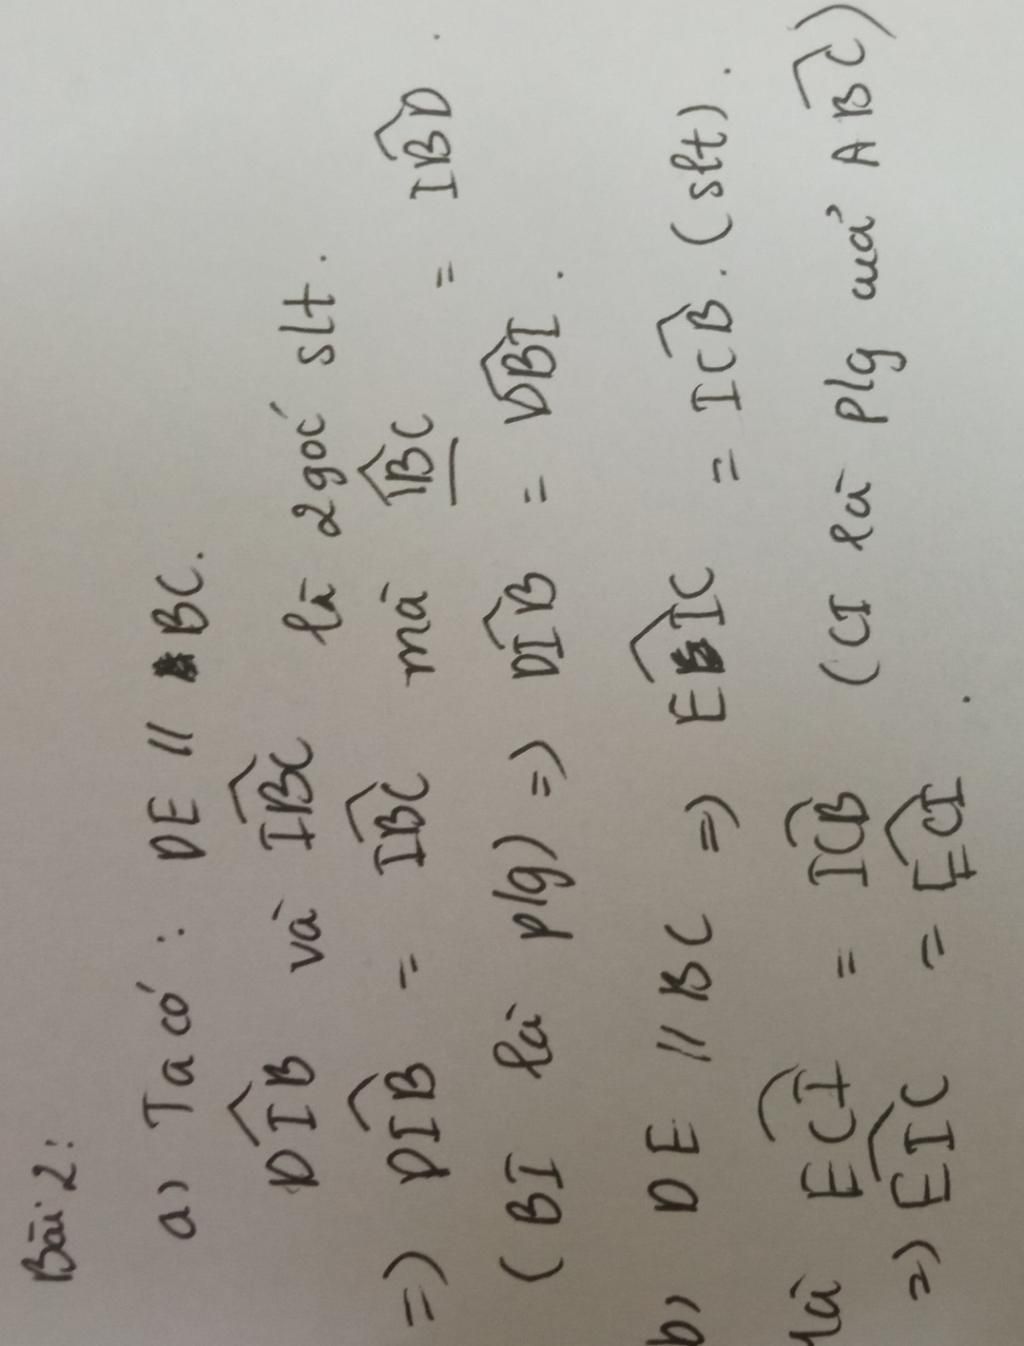 Bài 2:
a) Ta có: DE // BC.
DIB và IBC là 2 góc slt.
=) DIB = IBC mà IBC = IBD.
(BI là plg) =) DIB = DBI.
b) DE // BC =) EIC = ICB. (slt).
Mà ECI = ICB (CI là plg của ABC)
=) EIC = ECI.